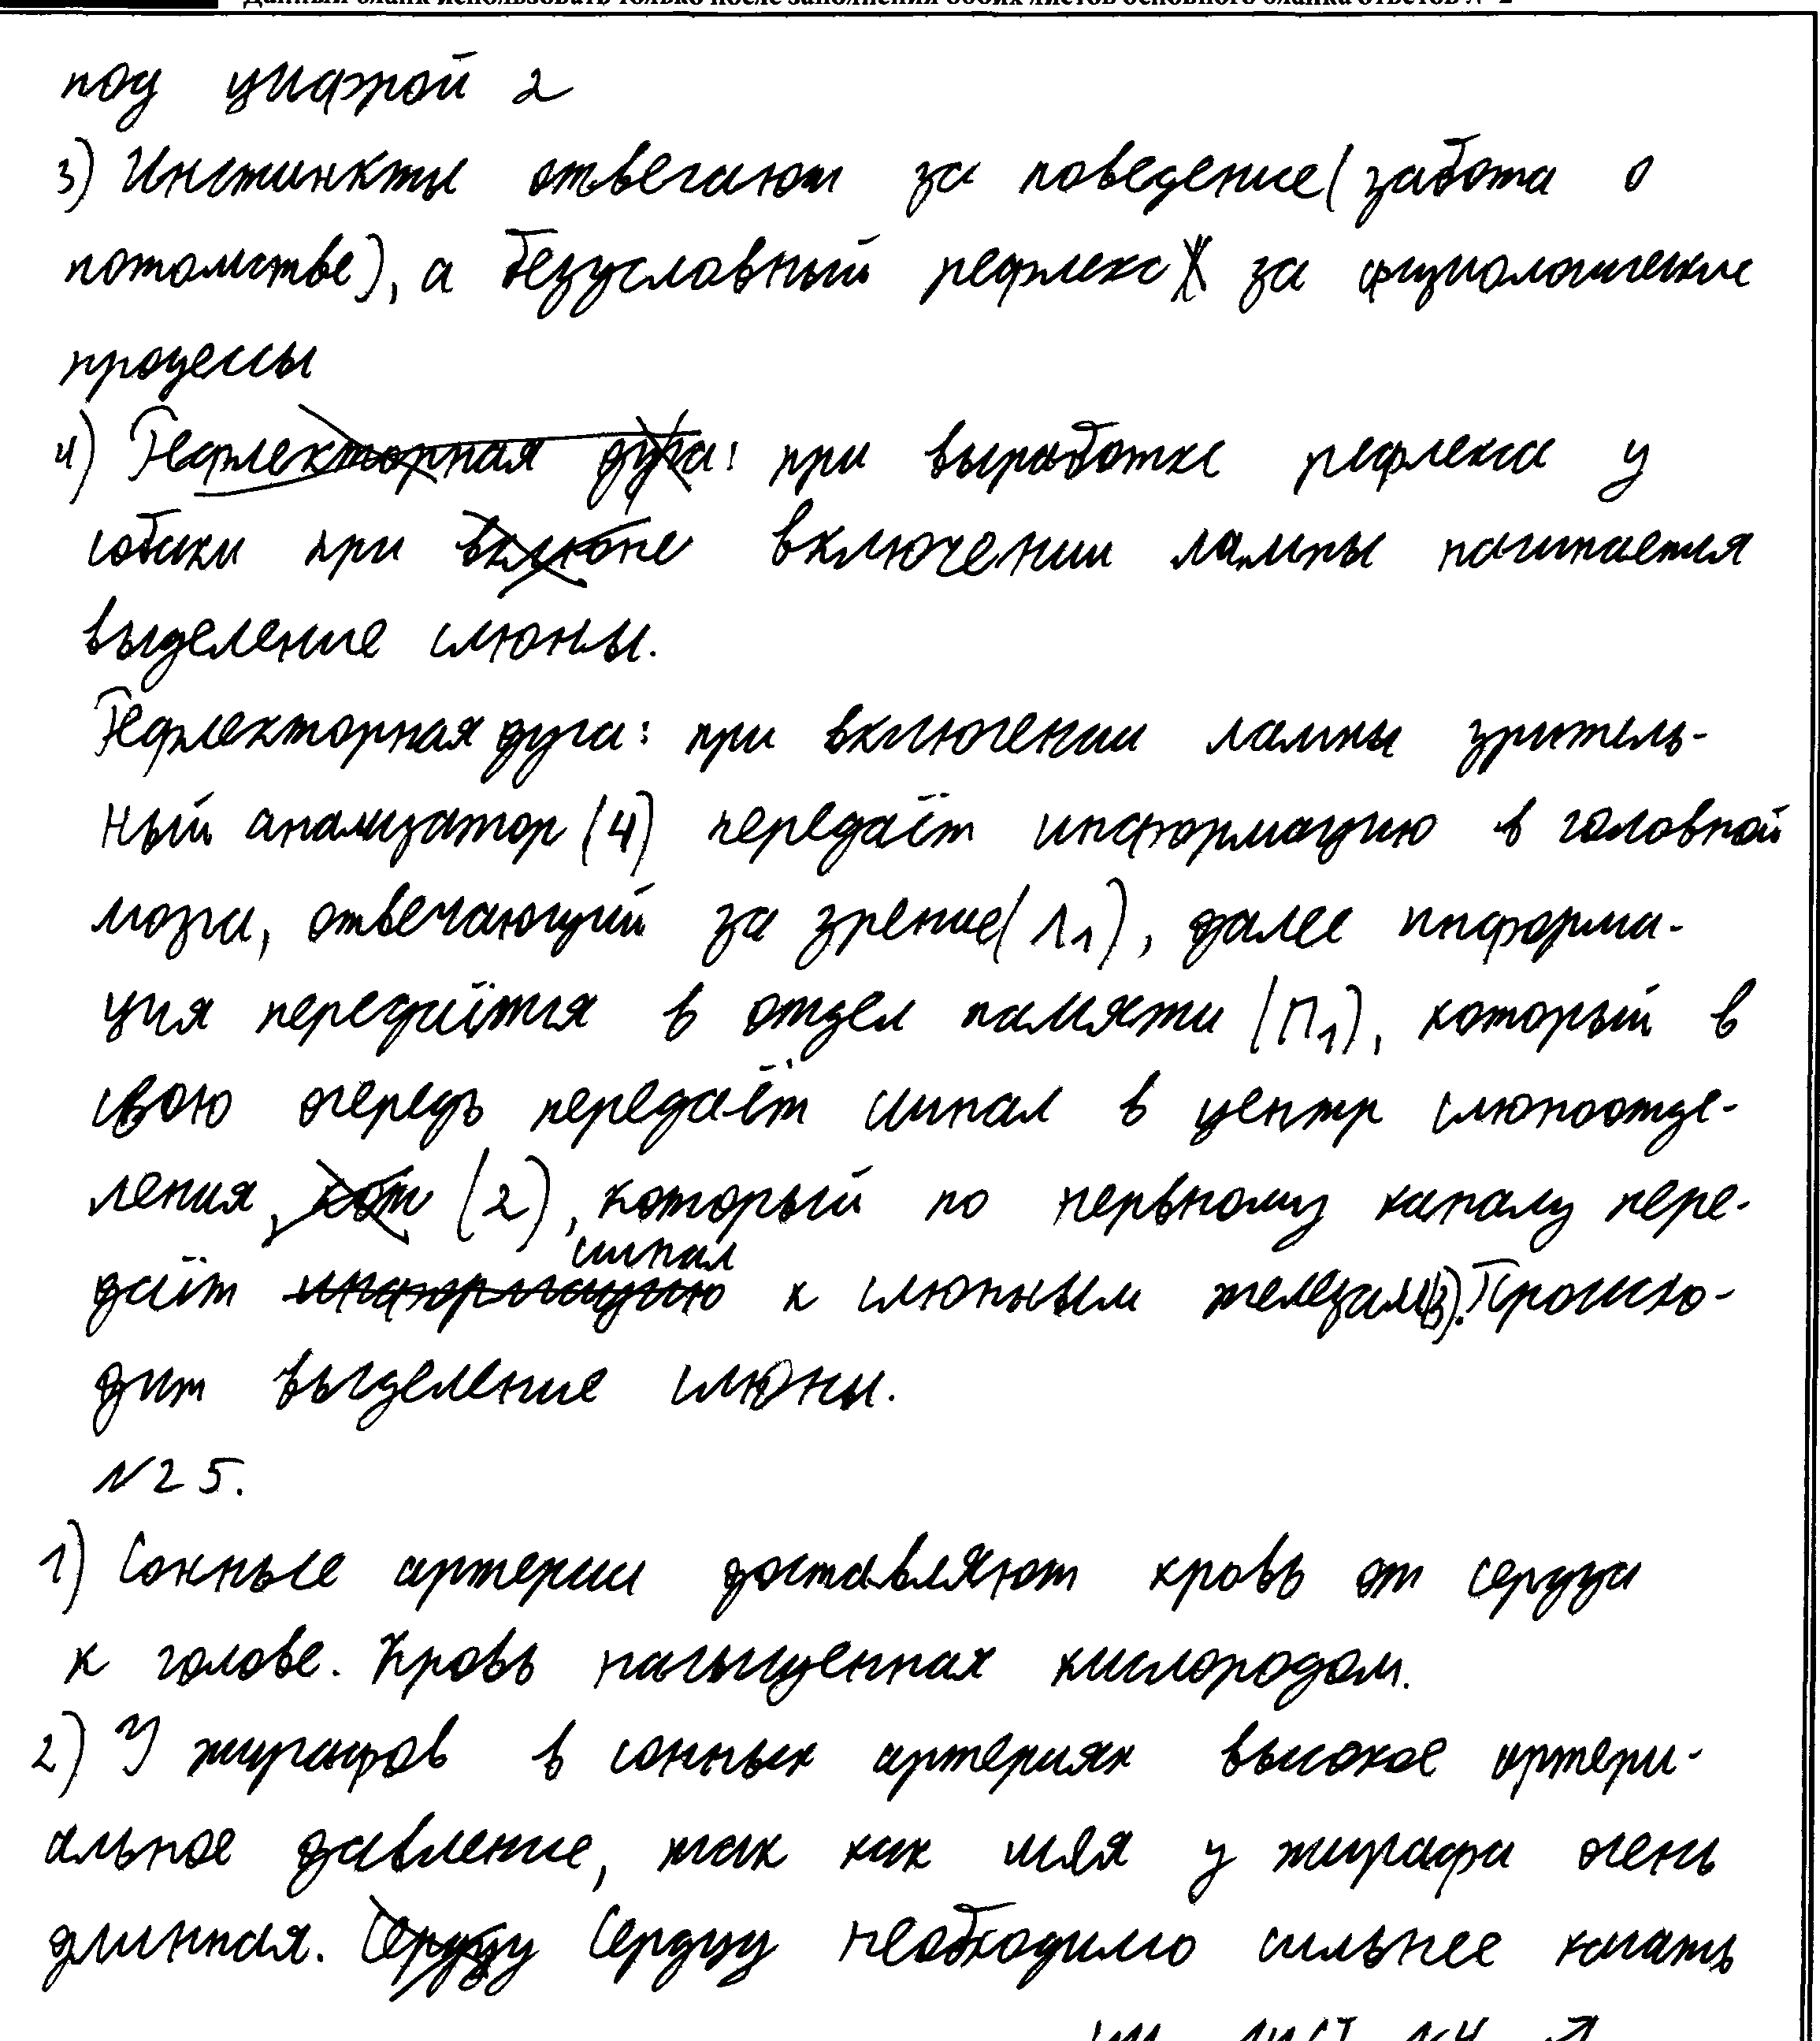 Данный бланк использовать только после заполнения обоих листов основного бланка ответов № 2
под цифрой 2
3) Инстинкты отвечают за поведение (забота о
потомстве), а безусловный рефлекс за физиологические
процессы
4) Рефлекторная дуга: при выработке рефлекса у
собаки при включении лампы начинается
выделение слюны.
Рефлекторная дуга: при включении лампы зритель-
ный анализатор (4) передаёт информацию в головной
мозга, отвечающий за зрение (Л1), далее информа-
ция передаётся в отдел памяти (П1), который в
свою очередь передаёт сигнал в центр слюноотде-
ления (2), который по нервному каналу пере-
даёт сигнал к слюнным железам (3). Происхо-
дит выделение слюны.
№25.
1) Сонные артерии доставляют кровь от сердца
к голове. Кровь насыщенная кислородом.
2) У жирафов в сонных артериях высокое артери-
альное давление, так как шея у жирафа очень
длинная. Сердцу Сердцу необходимо сильнее качать